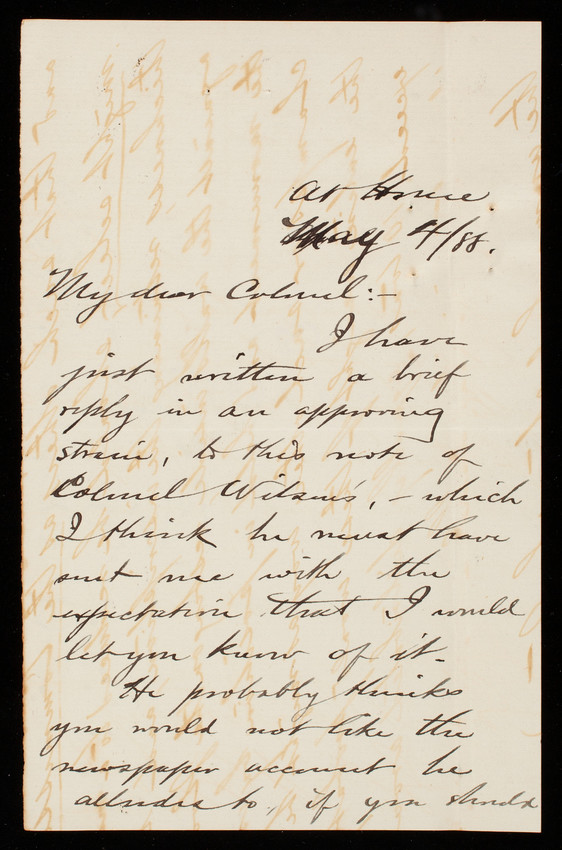 At Home.
May 4/88.
My dear Colonel:-
I have
just written a brief
reply in an approving
strain, to this note of
Colonel Wilson's, - which
I think he must have
sent me with the
expectation that I would
let you know of it.
He probably thinks
you would not like the
newspaper account he
alludes to, if you should